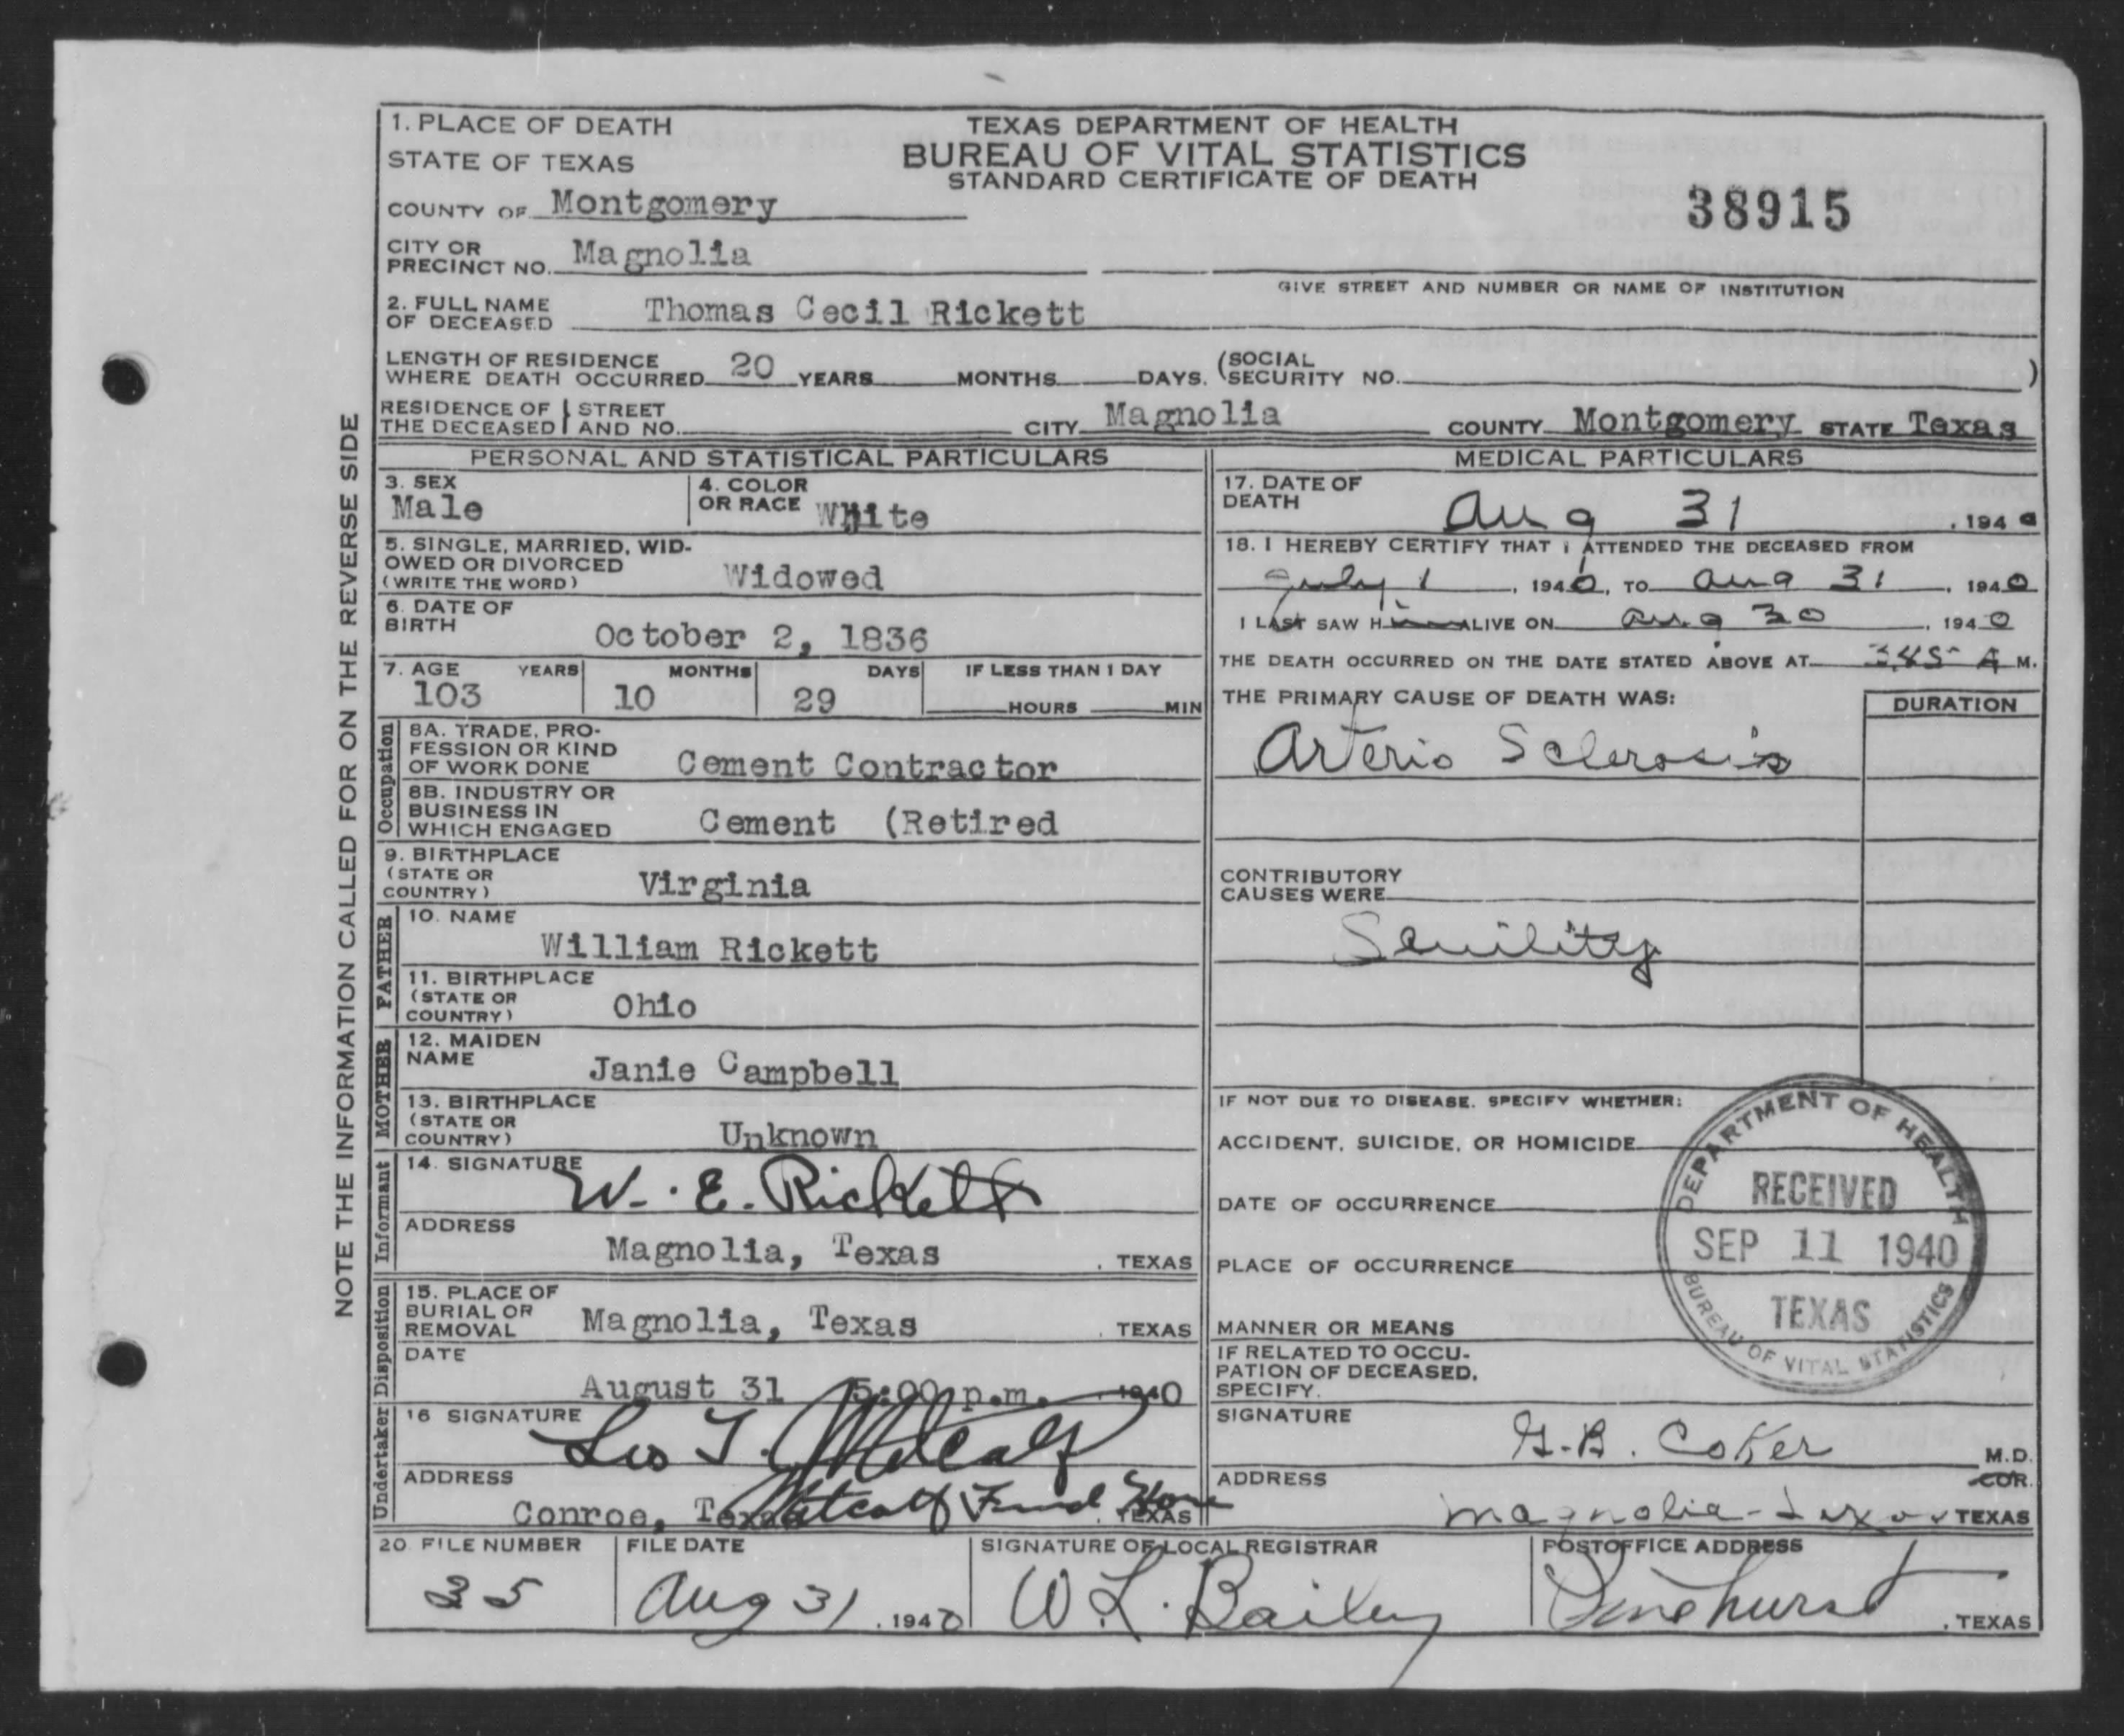 NOTE THE INFORMATION CALLED FOR ON THE REVERSE SIDE
1. PLACE OF DEATH
STATE OF TEXAS
COUNTY OF Montgomery
CITY OR PRECINCT NO. Magnolia
TEXAS DEPARTMENT OF HEALTH
BUREAU OF VITAL STATISTICS
STANDARD CERTIFICATE OF DEATH
38915
GIVE STREET AND NUMBER OR NAME OF INSTITUTION
2. FULL NAME OF DECEASED Thomas Cecil Rickett
LENGTH OF RESIDENCE WHERE DEATH OCCURRED 20 YEARS MONTHS DAYS. (SOCIAL SECURITY NO. )
RESIDENCE OF THE DECEASED STREET AND NO. CITY Magnolia COUNTY Montgomery STATE Texas
PERSONAL AND STATISTICAL PARTICULARS
3. SEX Male
4. COLOR OR RACE White
5. SINGLE, MARRIED, WIDOWED OR DIVORCED (WRITE THE WORD) Widowed
6. DATE OF BIRTH October 2, 1836
7. AGE YEARS MONTHS DAYS IF LESS THAN 1 DAY
103 10 29 HOURS MIN
Occupation
8A. TRADE, PROFESSION OR KIND OF WORK DONE Cement Contractor
8B. INDUSTRY OR BUSINESS IN WHICH ENGAGED Cement (Retired
9. BIRTHPLACE (STATE OR COUNTRY) Virginia
FATHER
10. NAME William Rickett
11. BIRTHPLACE (STATE OR COUNTRY) Ohio
MOTHER
12. MAIDEN NAME Janie Campbell
13. BIRTHPLACE (STATE OR COUNTRY) Unknown
Informant
14. SIGNATURE W. E. Rickett
ADDRESS Magnolia, Texas , TEXAS
Disposition
15. PLACE OF BURIAL OR REMOVAL Magnolia, Texas , TEXAS
DATE August 31 5:00 p.m. , 1940
Undertaker
16 SIGNATURE Leo T. Metcalf
ADDRESS Conroe, Texas Metcalf Funl Home , TEXAS
MEDICAL PARTICULARS
17. DATE OF DEATH Aug 31 , 1940
18. I HEREBY CERTIFY THAT I ATTENDED THE DECEASED FROM
July 1 , 1940, TO Aug 31 , 1940
I LAST SAW HIM ALIVE ON Aug 30 , 1940
THE DEATH OCCURRED ON THE DATE STATED ABOVE AT 3:45 A M.
THE PRIMARY CAUSE OF DEATH WAS: DURATION
Arterio Sclerosis
CONTRIBUTORY CAUSES WERE
Senility
IF NOT DUE TO DISEASE, SPECIFY WHETHER:
ACCIDENT, SUICIDE, OR HOMICIDE
DATE OF OCCURRENCE
PLACE OF OCCURRENCE
MANNER OR MEANS
IF RELATED TO OCCUPATION OF DECEASED, SPECIFY.
DEPARTMENT OF HEALTH
RECEIVED
SEP 11 1940
TEXAS
BUREAU OF VITAL STATISTICS
SIGNATURE G. B. Coker M.D.
COR.
ADDRESS Magnolia - Texas TEXAS
20 FILE NUMBER 35
FILE DATE Aug 31 , 1940
SIGNATURE OF LOCAL REGISTRAR W L. Bailey
POSTOFFICE ADDRESS Pinehurst , TEXAS